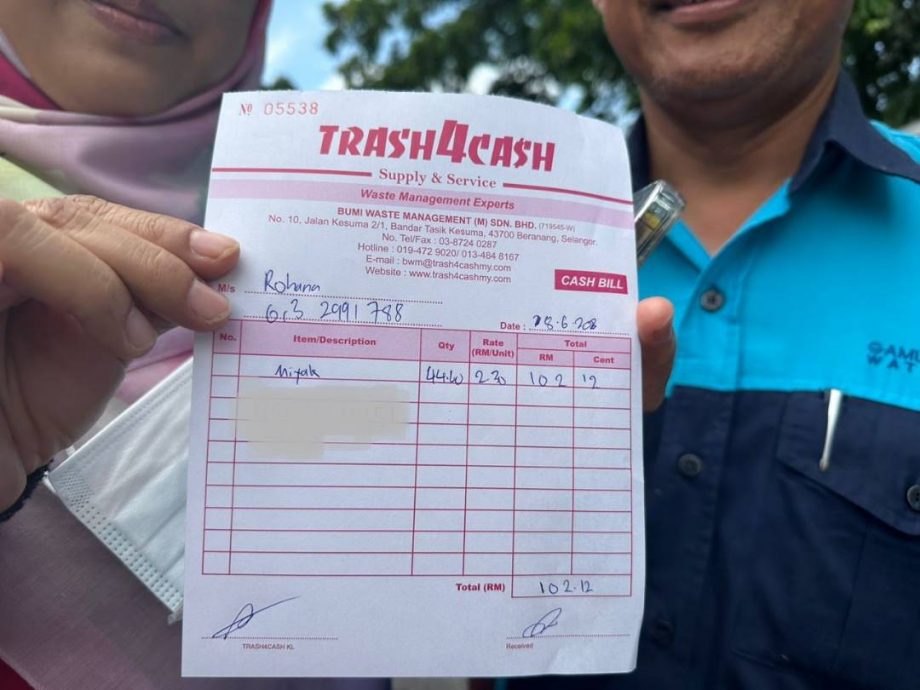 № 05538
TRASH4CASH
Supply & Service
Waste Management Experts
BUMI WASTE MANAGEMENT (M) SDN. BHD. (719545-W)
No. 10, Jalan Kesuma 2/1, Bandar Tasik Kesuma, 43700 Beranang, Selangor.
No. Tel/Fax : 03-8724 0287
Hotline : 019-472 9020/ 013-484 8167
E-mail : bwm@trash4cashmy.com
Website : www.trash4cashmy.com
CASH BILL
M/s Rohana
013 2991 788
Date :
No. Item/Description Qty Rate (RM/Unit) Total
RM Cent
Miyak 44.40 2.30 102 12
Total (RM) 102.12
TRASH4CASH KL
Received
GAMU
WAT